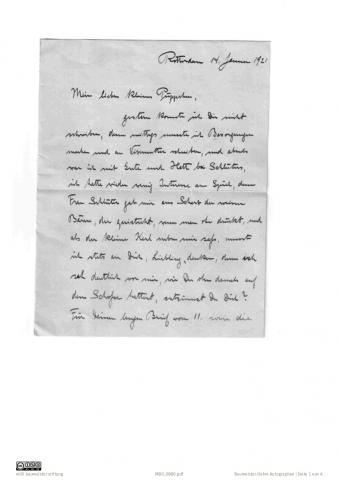 Rotterdam 14. Januar 1921
Mein liebes kleines Püppchen,
gestern konnte ich Dir nicht
schreiben, denn mittags musste ich Besorgungen
machen und an schreiben, und abends
war ich mit und bei Schlüters,
ich hatte wieder wenig Interesse am Spiel, denn
Frau Schlüter gab mir am den weissen
Bären, der quietscht, wenn man ihn drückt, und
als der kleine Kerl neben mir sass, musste
ich stets an Dich, Liebling, denken, denn ich
sah deutlich vor mir, wie Du ihn damals auf
dem Schosse hattest, entsinnst Du Dich?
Für Deinen langen Brief vom 11. sowie die
willi baumeister stiftung
Seite 1 von 4